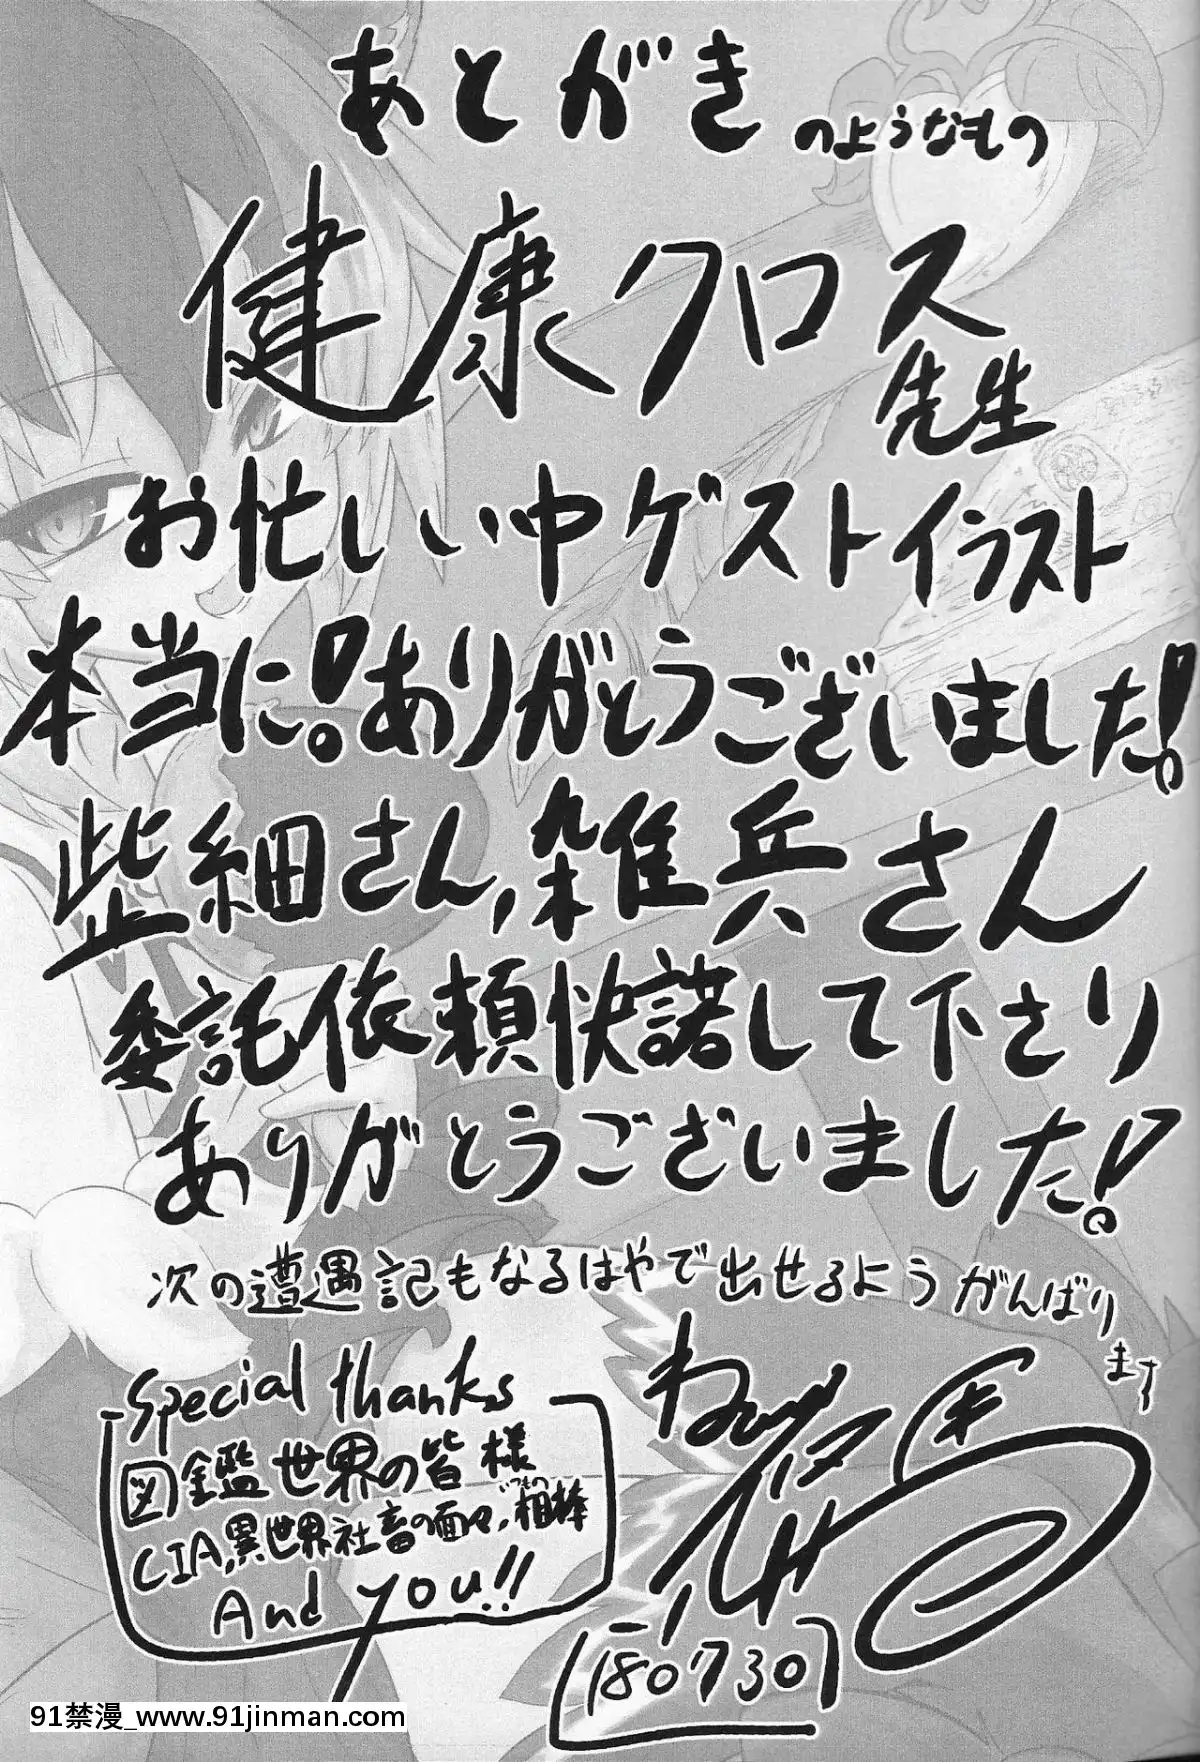 あとがきのようなもの
健康クロス先生
お忙しい中ゲストイラスト
本当に!ありがとうございました!
柴細さん,雑兵さん
委託依頼快諾して下さり
ありがとうございました!
次の遭遇記もなるはやで出せるようがんばります
Special thanks
図鑑世界の皆様
CIA,異世界社畜の面々,いつもの相棒
And you!!
180730
91禁漫_www.91jinman.com